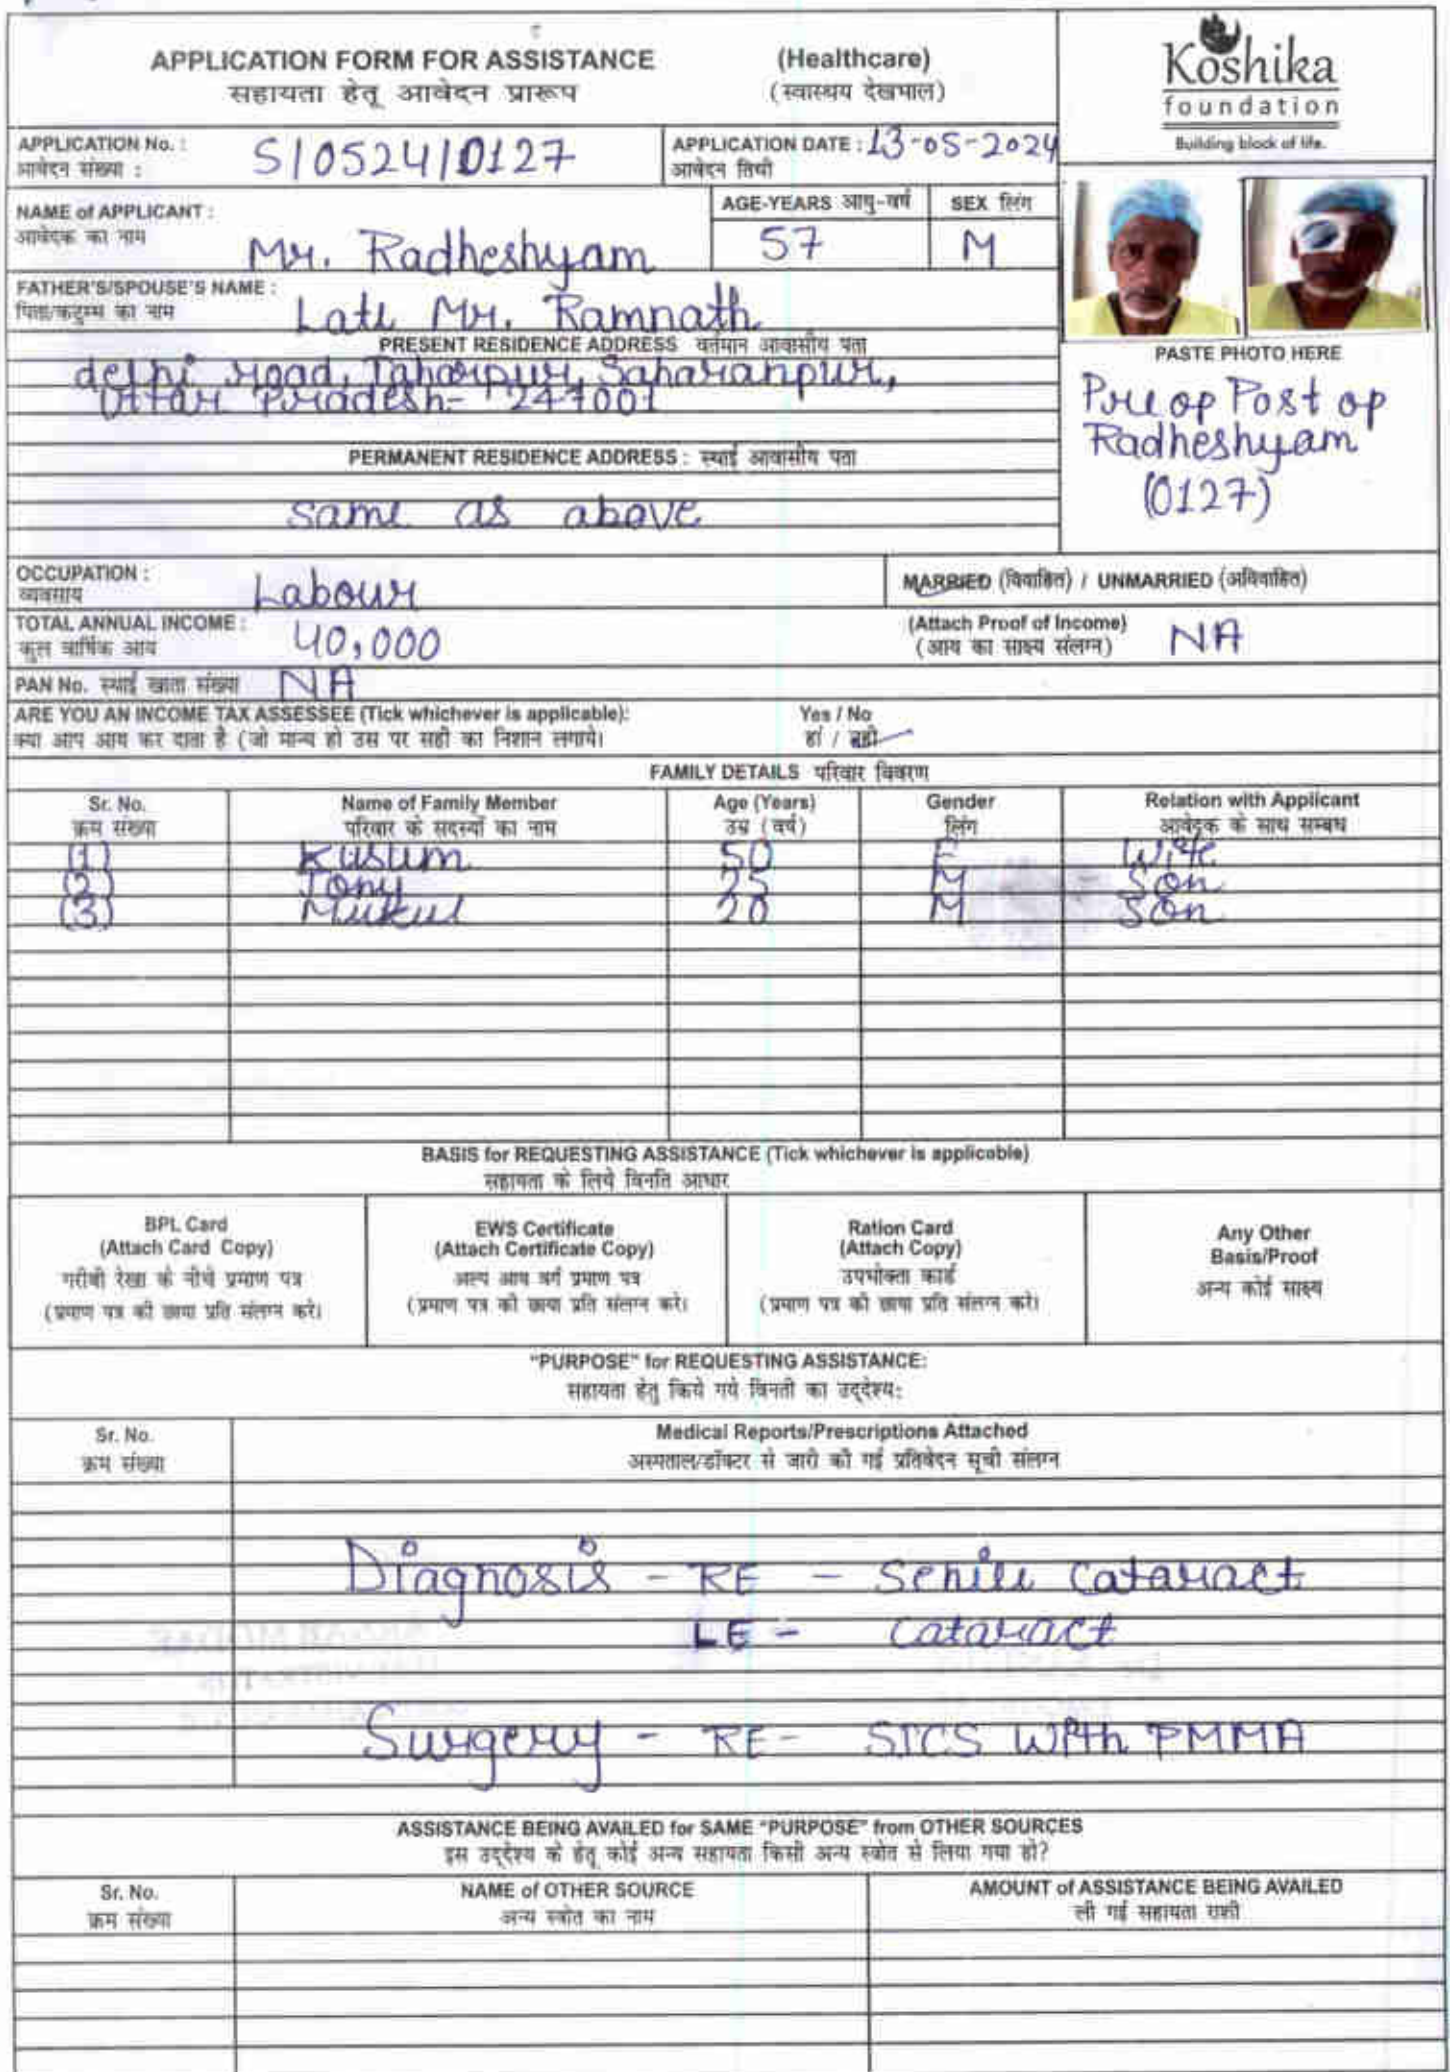 APPLICATION FORM FOR ASSISTANCE
(Healthcare)
सहायता हेतू आवेदन प्रारूप
(स्वास्थय देखभाल)
Koshika
foundation
Building block of life.
APPLICATION No. :
आवेदन संख्या :
S/0524/0127
APPLICATION DATE : 13-05-2024
आवेदन तिथी
NAME of APPLICANT :
आवेदक का नाम
Mr. Radheshyam
AGE-YEARS आयु-वर्ष
57
SEX लिंग
M
FATHER'S/SPOUSE'S NAME :
पिता/कटुम्ब का नाम
Late Mr. Ramnath
PRESENT RESIDENCE ADDRESS वर्तमान आवासीय पता
delhi road, Taharpur, Saharanpur,
Uttar Pradesh- 247001
PERMANENT RESIDENCE ADDRESS : स्थाई आवासीय पता
same as above
PASTE PHOTO HERE
Pre op Post op
Radheshyam
(0127)
OCCUPATION :
व्यवसाय
Labour
MARRIED (विवाहित) / UNMARRIED (अविवाहित)
TOTAL ANNUAL INCOME :
कुल वार्षिक आय
40,000
(Attach Proof of Income)
(आय का साक्ष्य संलग्न)
NA
PAN No. स्थाई खाता संख्या
NA
ARE YOU AN INCOME TAX ASSESSEE (Tick whichever is applicable):
Yes / No
क्या आप आय कर दाता है (जो मान्य हो उस पर सही का निशान लगाये।
हां / नही
FAMILY DETAILS परिवार विवरण
Sr. No.
क्रम संख्या
Name of Family Member
परिवार के सदस्यों का नाम
Age (Years)
उम्र (वर्ष)
Gender
लिंग
Relation with Applicant
आवेदक के साथ सम्बध
(1) Kusum 50 F Wife
(2) Tony 25 M Son
(3) Mukul 20 M Son
BASIS for REQUESTING ASSISTANCE (Tick whichever is applicable)
सहायता के लिये विनति आधार
BPL Card
(Attach Card Copy)
गरीबी रेखा के नीचे प्रमाण पत्र
(प्रमाण पत्र की छाया प्रति संलग्न करे।
EWS Certificate
(Attach Certificate Copy)
अल्प आय वर्ग प्रमाण पत्र
(प्रमाण पत्र की छाया प्रति संलग्न करे।
Ration Card
(Attach Copy)
उपभोक्ता कार्ड
(प्रमाण पत्र की छाया प्रति संलग्न करे।
Any Other
Basis/Proof
अन्य कोई साक्ष्य
"PURPOSE" for REQUESTING ASSISTANCE:
सहायता हेतु किये गये विनती का उद्देश्य:
Sr. No.
क्रम संख्या
Medical Reports/Prescriptions Attached
अस्पताल/डॉक्टर से जारी की गई प्रतिवेदन सूची संलग्न
Diagnosis - RE - Senile Cataract
LE - Cataract
Surgery - RE - SICS With PMMA
ASSISTANCE BEING AVAILED for SAME "PURPOSE" from OTHER SOURCES
इस उद्देश्य के हेतू कोई अन्य सहायता किसी अन्य स्त्रोत से लिया गया हो?
Sr. No.
क्रम संख्या
NAME of OTHER SOURCE
अन्य स्त्रोत का नाम
AMOUNT of ASSISTANCE BEING AVAILED
ली गई सहायता राशी